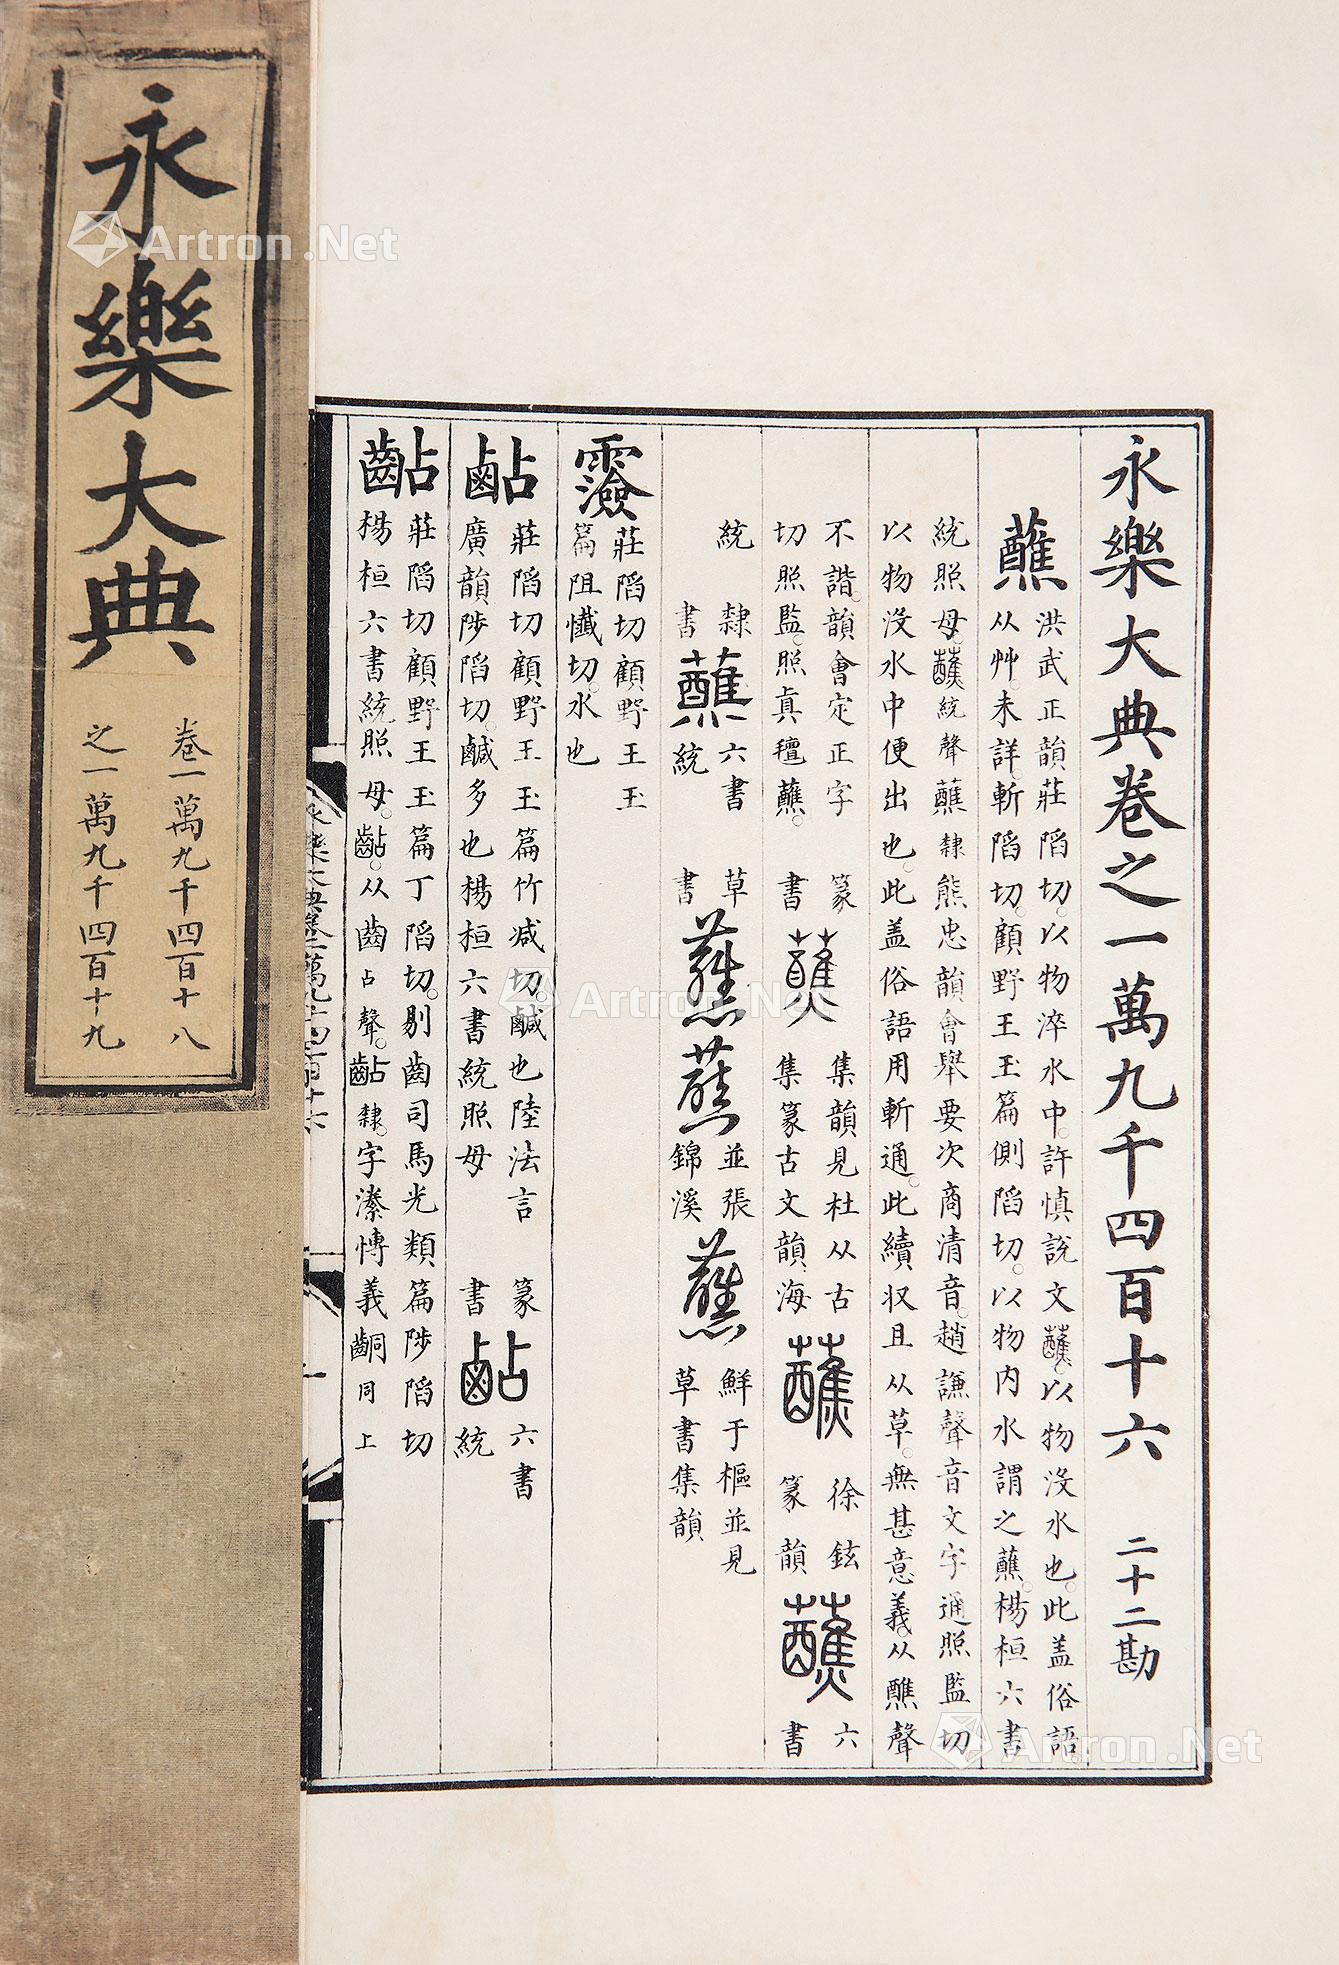 永樂大典
卷一萬九千四百十八
之一萬九千四百十九
永樂大典卷之一萬九千四百十六 二十二勘
蘸
洪武正韻莊陷切。以物淬水中。許慎說文蘸。以物沒水也。此盖俗語。
从艸。未詳。斬陷切。顧野王玉篇側陷切。以物內水謂之蘸。楊桓六書
統照母。蘸統聲蘸隸熊忠韻會舉要次商清音。趙謙聲音文字通照監切
以物沒水中便出也。此盖俗語用斬通。此續収且从草。無甚意義。从醮聲
不諧。韻會定正字
切照監。照真䆄蘸。
篆書
集韻見杜从古
集篆古文韻海
徐鉉
篆韻
六書
統
隸書
蘸
六書
統
草書
並張
錦溪
鮮于樞並見
草書集韻
莊陷切顧野王玉
篇阻懺切。水也
莊陷切顧野王玉篇竹减切。鹹也陸法言
廣韻陟陷切。鹹多也楊桓六書統照母
篆書
六書
統
莊陷切顧野王玉篇丁陷切。剔齒司馬光類篇陟陷切
楊桓六書統照母。从齒占聲。隸。字潫愽義同上
Artron.Net
Artron.Net
Artron.Net